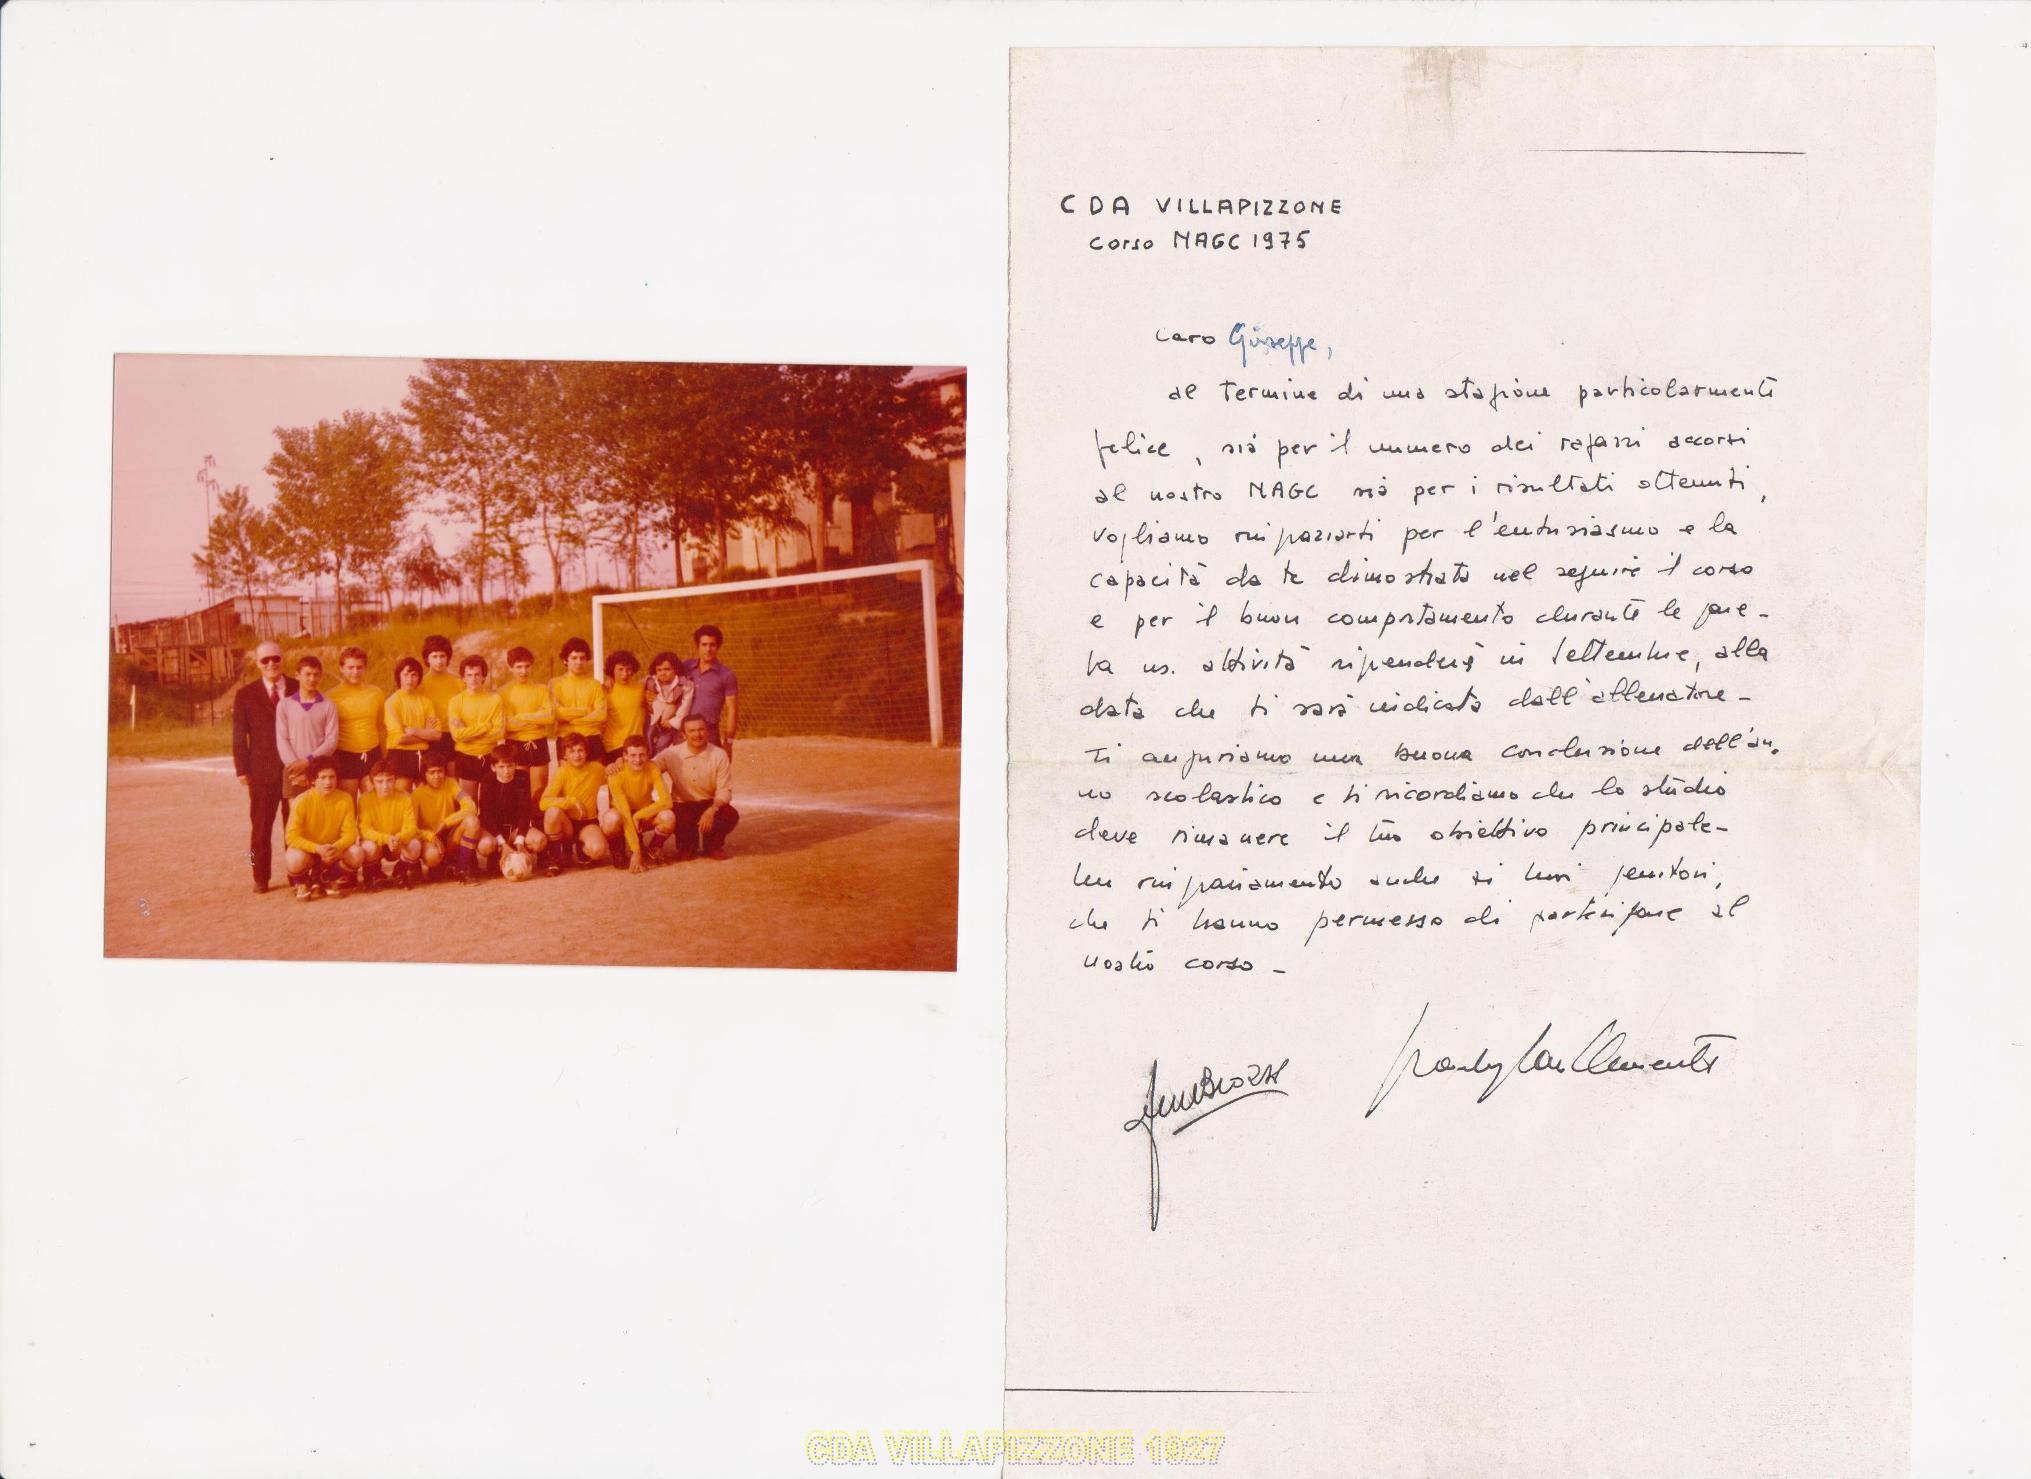 CDA VILLAPIZZONE
Corso NAGC 1975
Caro Giuseppe,
al termine di una stagione particolarmente
felice, sia per il numero dei ragazzi accorsi
al nostro NAGC sia per i risultati ottenuti,
vogliamo ringraziarti per l'entusiasmo e la
capacità da te dimostrata nel seguire il corso
e per il buon comportamento durante le gare-
La ns. attività riprenderà in settembre, alla
data che ti sarà indicata dall'allenatore-
Ti auguriamo una buona conclusione dell'an.
no scolastico e ti ricordiamo che lo studio
deve rimanere il tuo obiettivo principale-
Un ringraziamento anche ai tuoi genitori,
che ti hanno permesso di partecipare al
nostro corso-
Clemente
CDA VILLAPIZZONE 1927